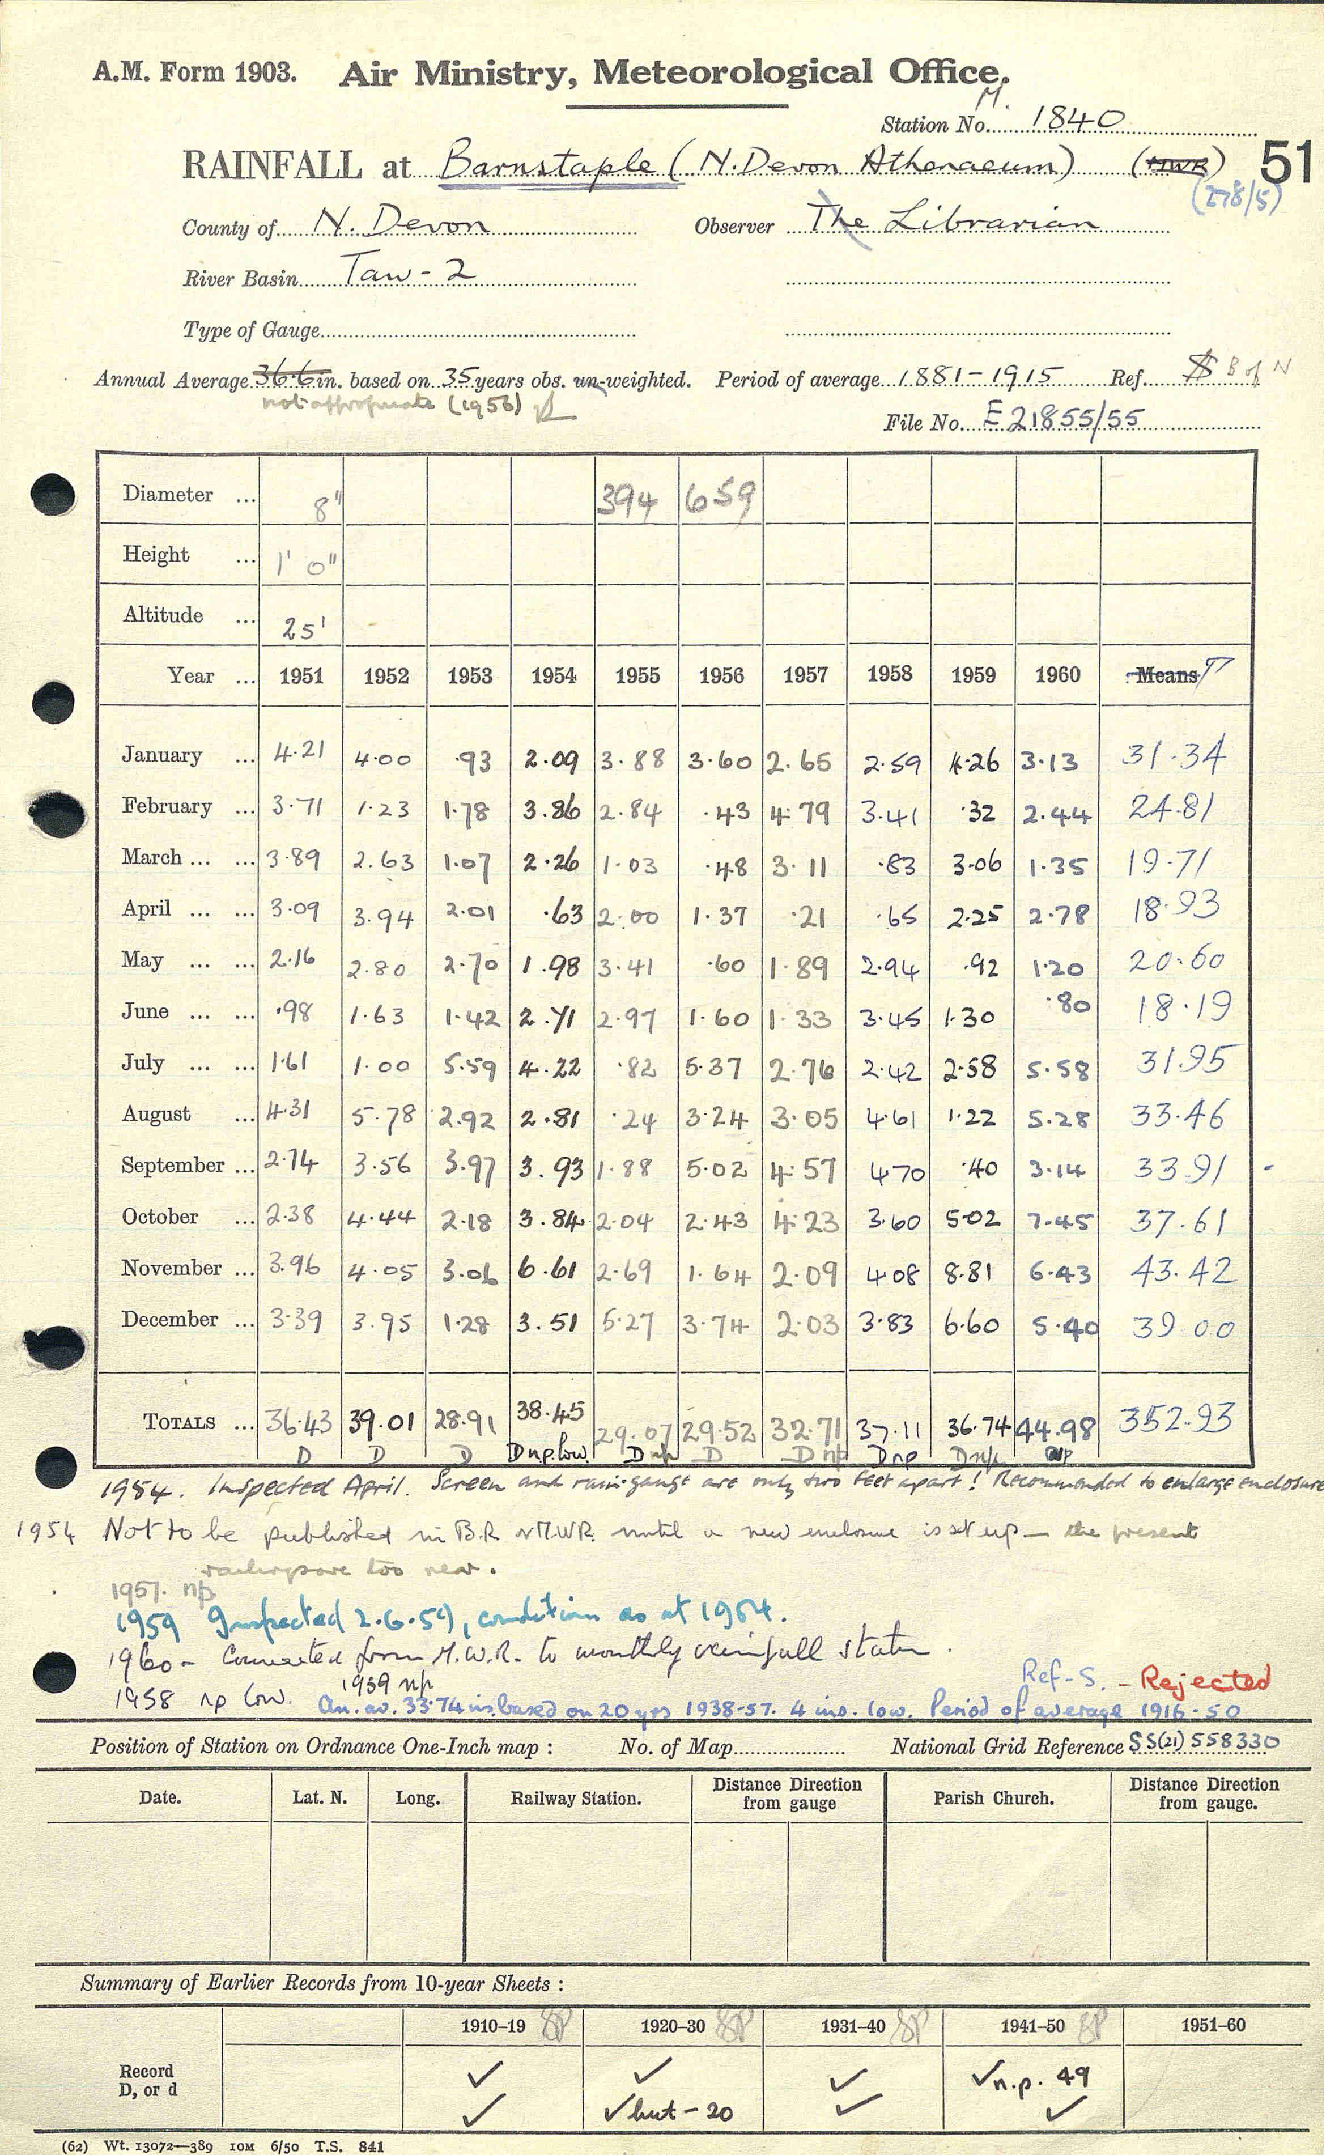 A.M. Form 1903. Air Ministry, Meteorological Office.
M.
Station No. 1840
RAINFALL at Barnstaple (N. Devon Athenaeum) (MWR) 51
(278/5)
County of N. Devon Observer The Librarian
River Basin Taw - 2
Type of Gauge
Annual Average 36.6 in. based on 35 years obs. un-weighted. Period of average 1881-1915 Ref. S B of N
not appropriate (1956)
File No. E 21855/55
Diameter ... 8" 394 659
Height ... 1' 0"
Altitude ... 25'
Year ... 1951 1952 1953 1954 1955 1956 1957 1958 1959 1960 Means T
January ... 4.21 4.00 .93 2.09 3.88 3.60 2.65 2.59 4.26 3.13 31.34
February ... 3.71 1.23 1.78 3.86 2.84 .43 4.79 3.41 .32 2.44 24.81
March ... ... 3.89 2.63 1.07 2.26 1.03 .48 3.11 .83 3.06 1.35 19.71
April ... ... 3.09 3.94 2.01 .63 2.00 1.37 .21 .65 2.25 2.78 18.93
May ... ... 2.16 2.80 2.70 1.98 3.41 .60 1.89 2.94 .92 1.20 20.60
June ... ... .98 1.63 1.42 2.71 2.97 1.60 1.33 3.45 1.30 .80 18.19
July ... ... 1.61 1.00 5.59 4.22 .82 5.37 2.76 2.42 2.58 5.58 31.95
August ... 4.31 5.78 2.92 2.81 .24 3.24 3.05 4.61 1.22 5.28 33.46
September ... 2.74 3.56 3.97 3.93 1.88 5.02 4.57 4.70 .40 3.14 33.91
October ... 2.38 4.44 2.18 3.84 2.04 2.43 4.23 3.60 5.02 7.45 37.61
November ... 3.96 4.05 3.06 6.61 2.69 1.64 2.09 4.08 8.81 6.43 43.42
December ... 3.39 3.95 1.28 3.51 5.27 3.74 2.03 3.83 6.60 5.40 39.00
TOTALS ... 36.43 39.01 28.91 38.45 29.07 29.52 32.71 37.11 36.74 44.98 352.93
D D D D np low D np D D np D np D np np
1954. Inspected April. Screen and rain-gauge are only two feet apart! Recommended to enlarge enclosure
1954 Not to be published in B.R or M.W.R. until a new enclosure is set up — the present
railings are too near.
1957. np
1959 Inspected 2.6.59, condition as at 1954.
1960 - Converted from M.W.R. to monthly rainfall station.
1958 np low. 1959 np Ref-S. - Rejected
An. av. 33.74 ins. based on 20 yrs 1938-57. 4 ins. low. Period of average 1916-50
Position of Station on Ordnance One-Inch map : No. of Map National Grid Reference SS(21) 558330
Date. Lat. N. Long. Railway Station. Distance Direction from gauge Parish Church. Distance Direction from gauge.
Summary of Earlier Records from 10-year Sheets :
1910-19 1920-30 1931-40 1941-50 1951-60
Record ✓ ✓ ✓ ✓ n.p. 49
D, or d ✓ ✓ but - 20 ✓ ✓
(62) Wt. 13072—389 10M 6/50 T.S. 841